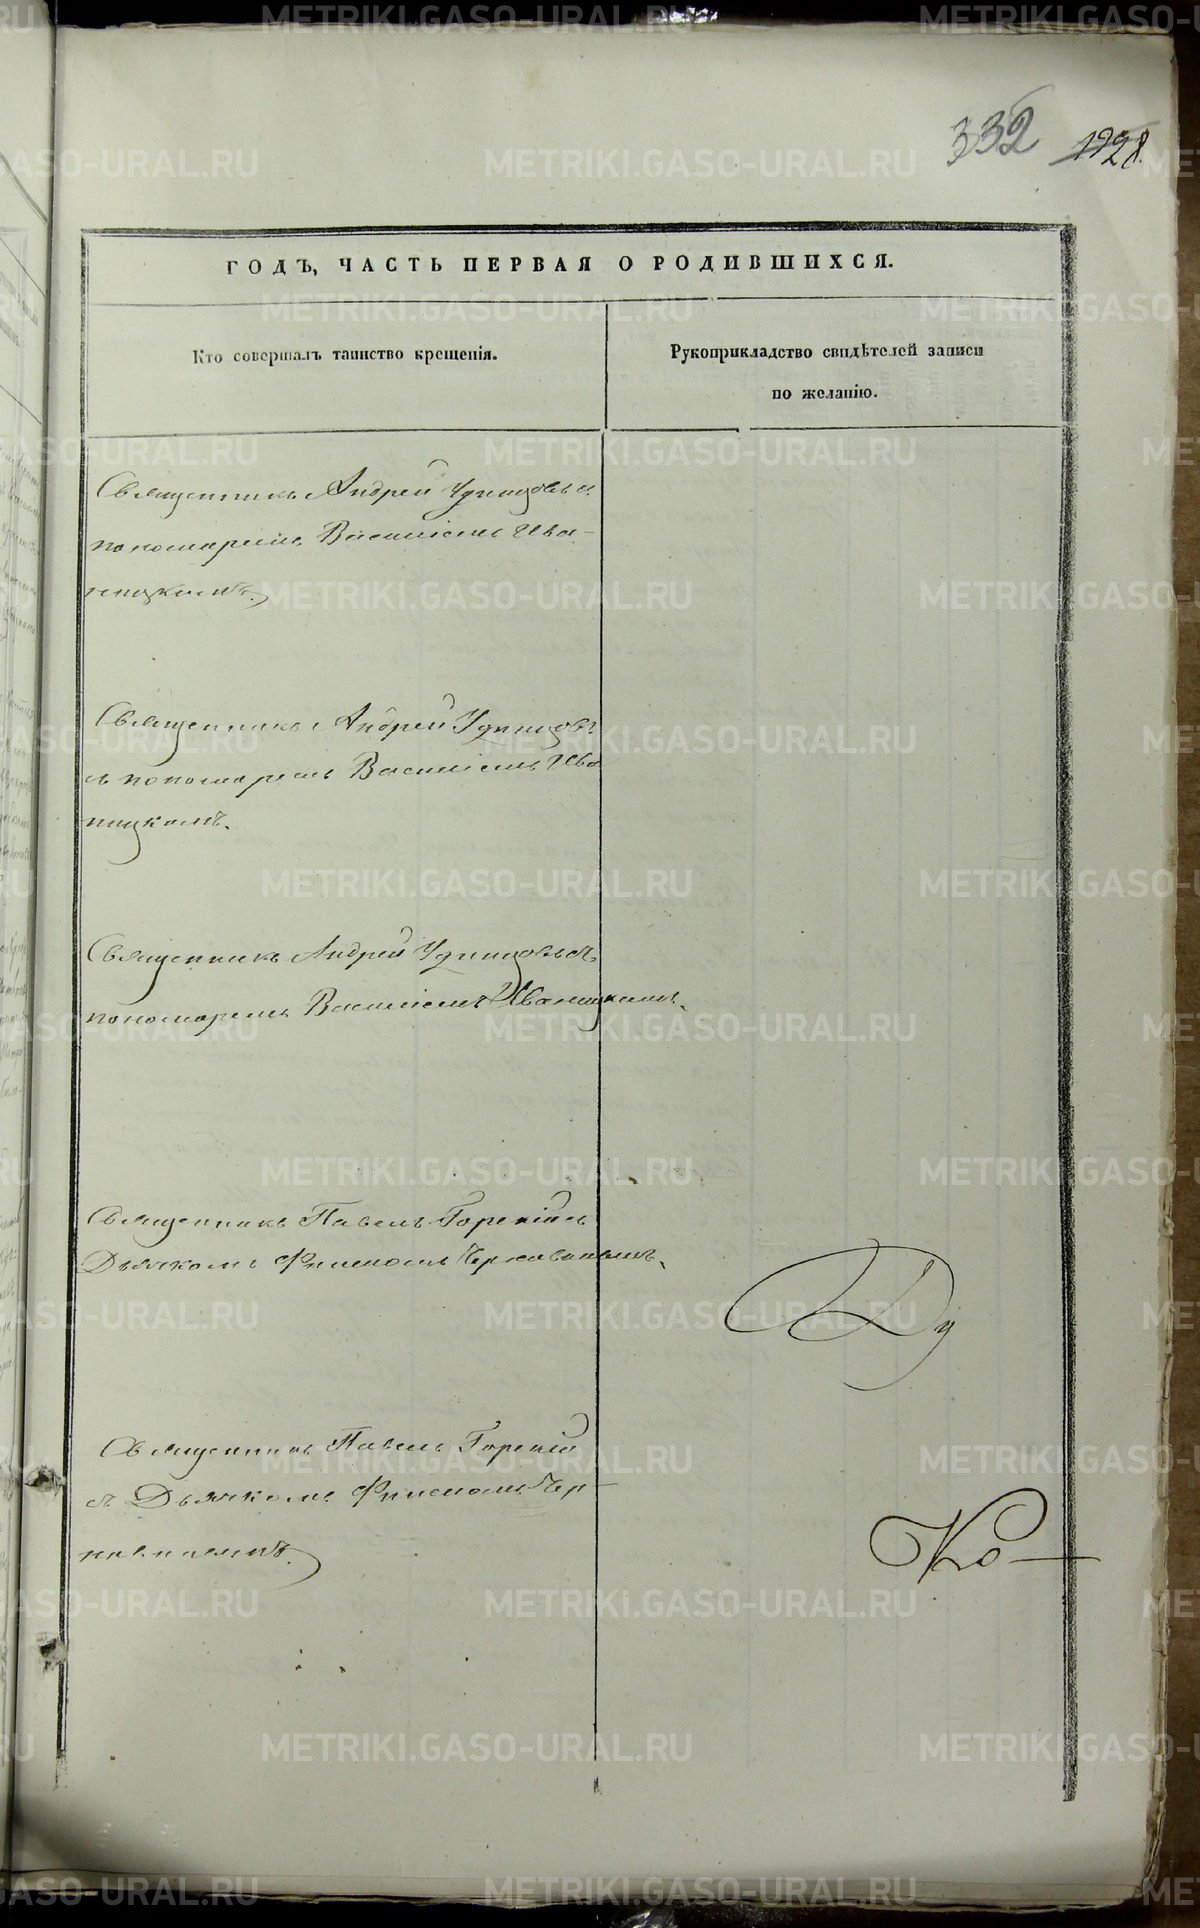 332 1928.
ГОДЪ, ЧАСТЬ ПЕРВАЯ О РОДИВШИХСЯ.
Кто совершалъ таинство крещенія.
Рукоприкладство свидѣтелей записи
по желанію.
Священникъ Андрей Удинцовъ съ
пономаремъ Василіемъ Ива-
ницкомъ.
Священникъ Андрей Удинцовъ
съ пономаремъ Василіемъ Ива
ницкомъ.
Священникъ Андрей Удинцовъ съ
пономаремъ Василіемъ Иваницкимъ.
Священникъ Павелъ Горекій съ
Дьячкомъ Филимономъ
Ду
Священникъ Павелъ Горекій
съ Дьячкомъ
Ко-
METRIKI.GASO-URAL.RU